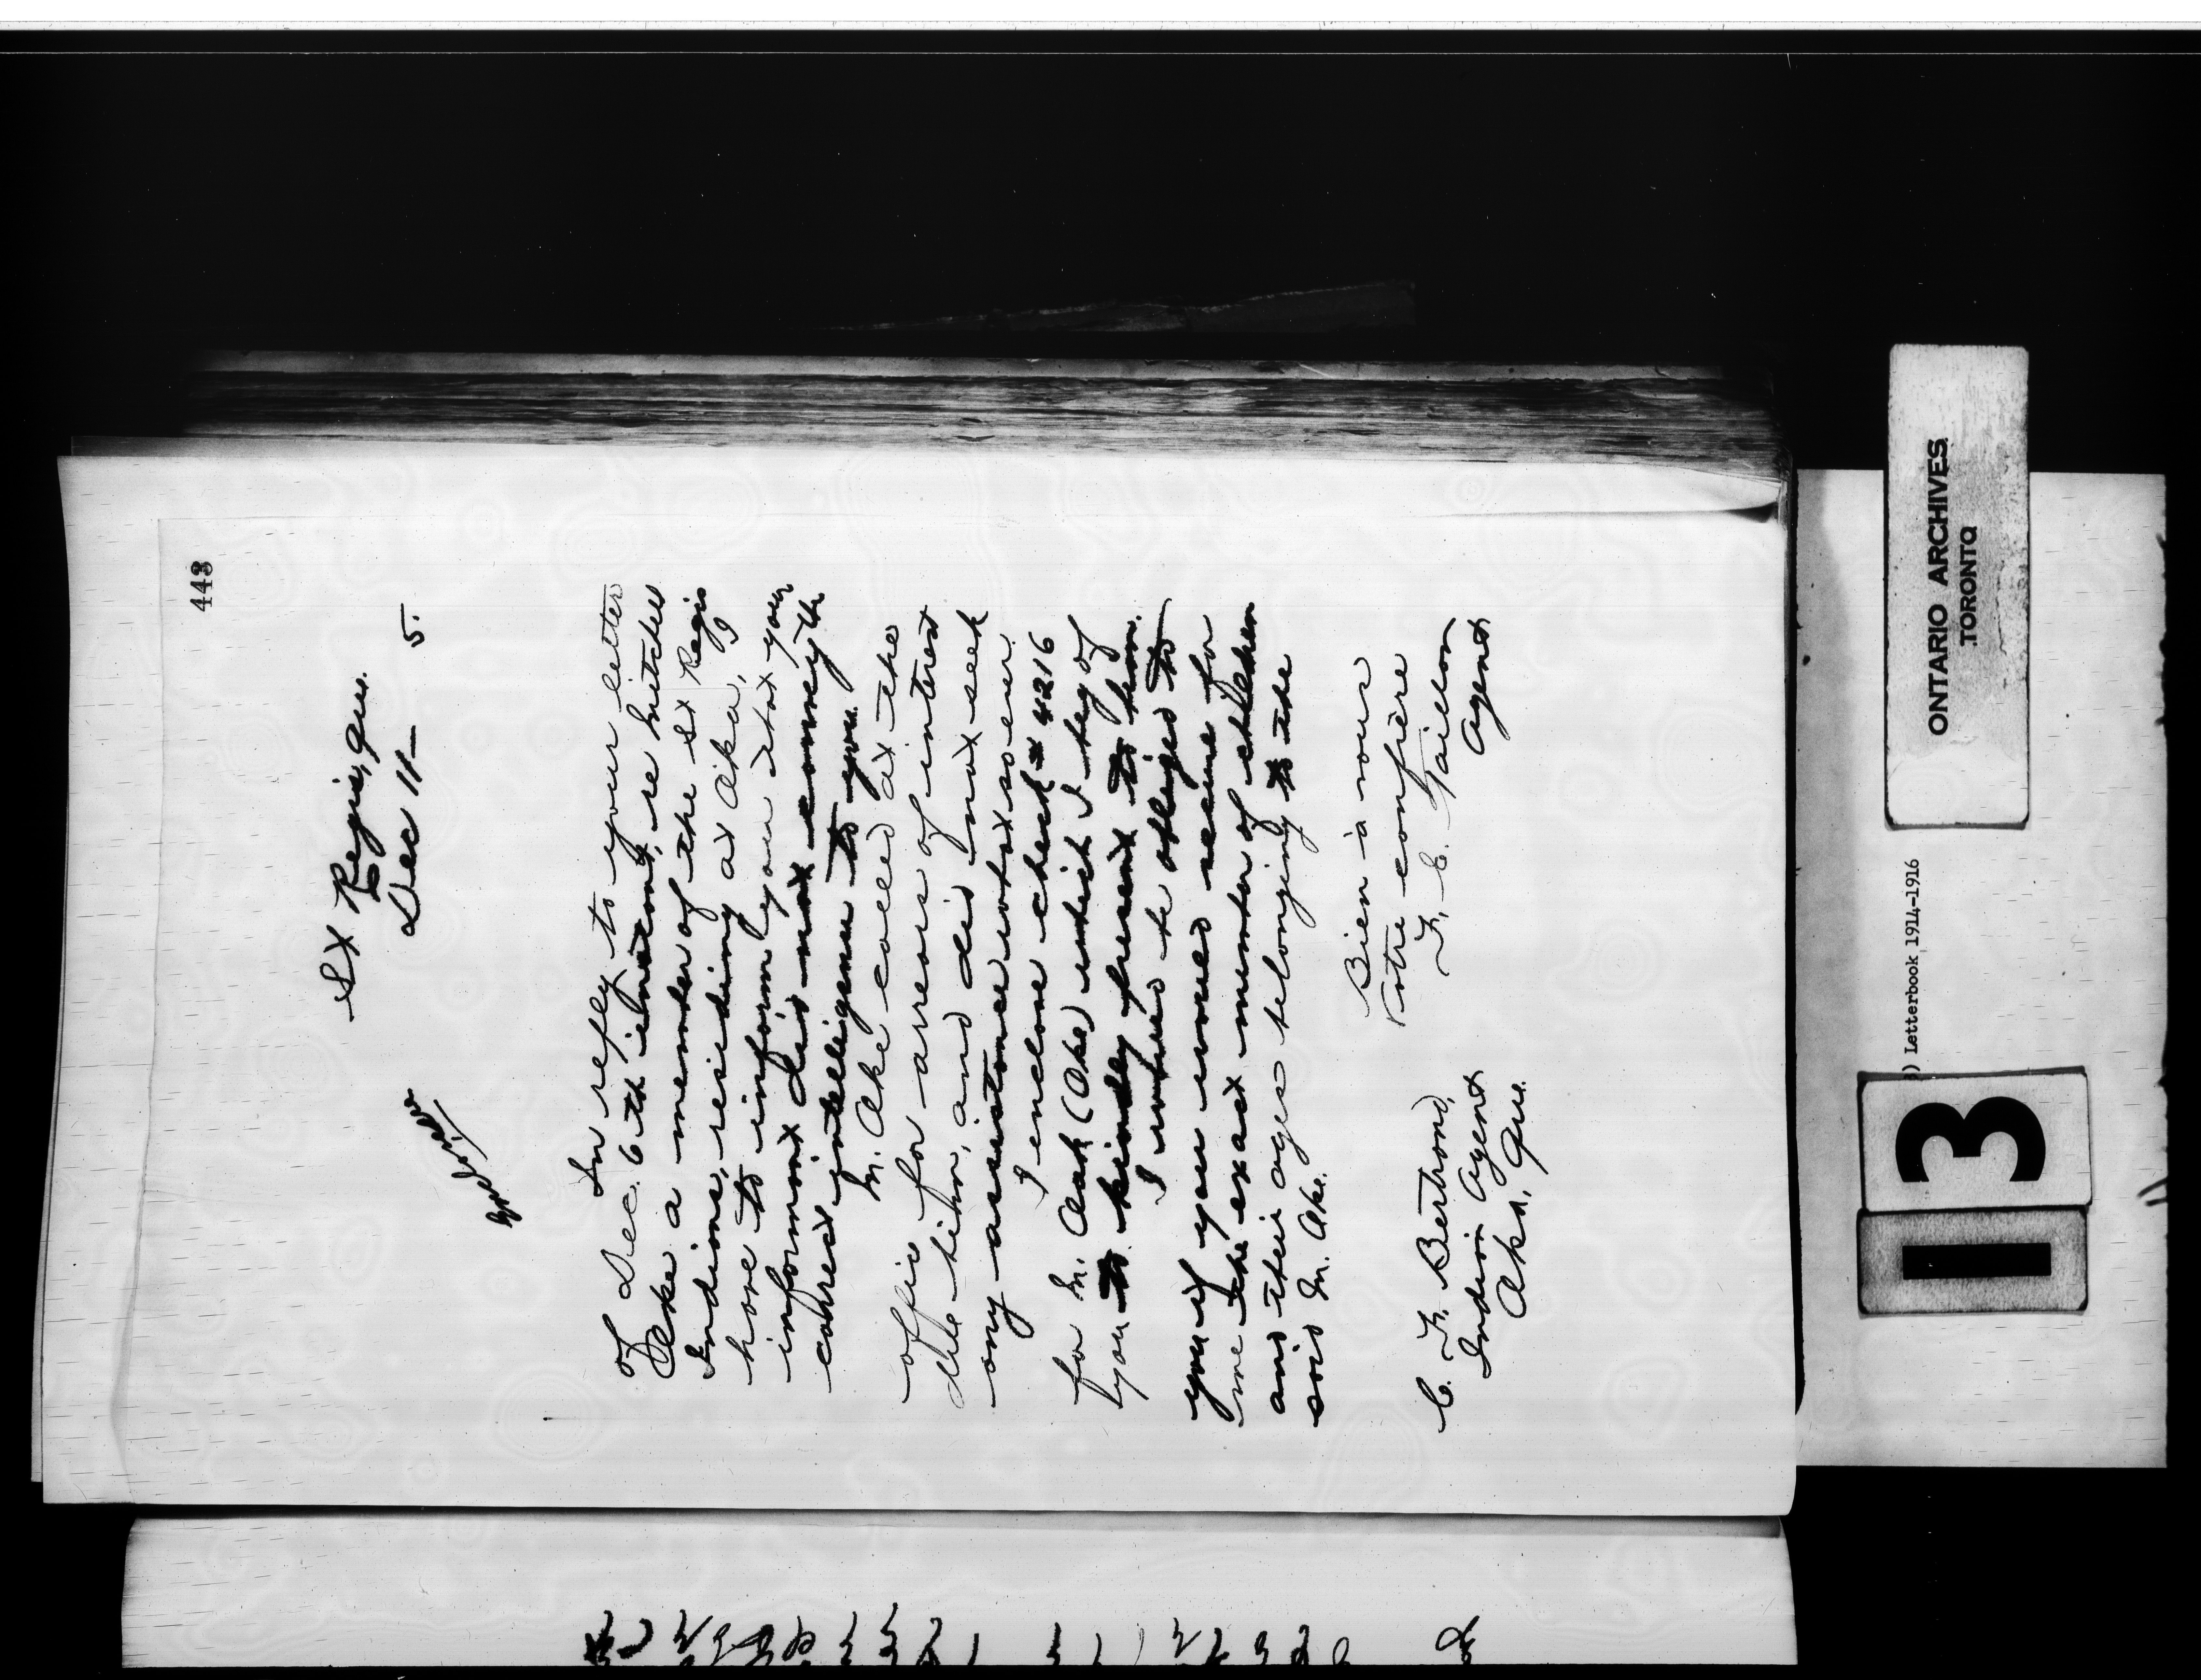 443
St Regis, Que.
Dec 11— 5.
In reply to your letter
of Dec. 6th instant, re Mitchel
Oke a member of the St Regis
Indians, residing at Oka, I
have to inform you that your
informant did not convey the
correct intelligence to you.
M. Oke called at the
office for arrears of interest
due him, and did not seek
any assistance whatsoever.
I enclose check # 4216
for M. Oak (Oke) which I beg of
you to kindly present to him.
I would be obliged to
you if you would secure for
me the exact number of children
and their ages belonging to the
said M. Oke.
Bien à vous
Votre confrère
F. E. Taillon
Agent
C. F. Bertrand,
Indian Agent
Oka, Que.
ONTARIO ARCHIVES
TORONTO
) Letterbook 1914-1916
13